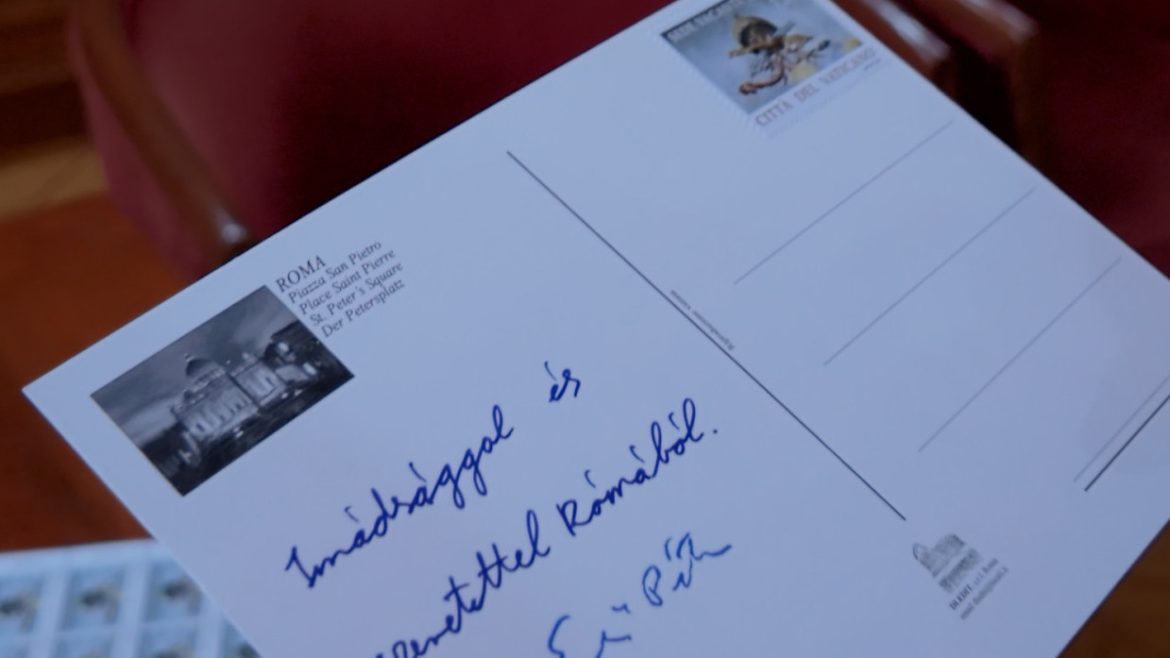 CITTÀ DEL VATICANO
ROMA
Piazza San Pietro
Place Saint Pierre
St. Peter's Square
Der Petersplatz
Imádsággal és
szeretettel Rómából.